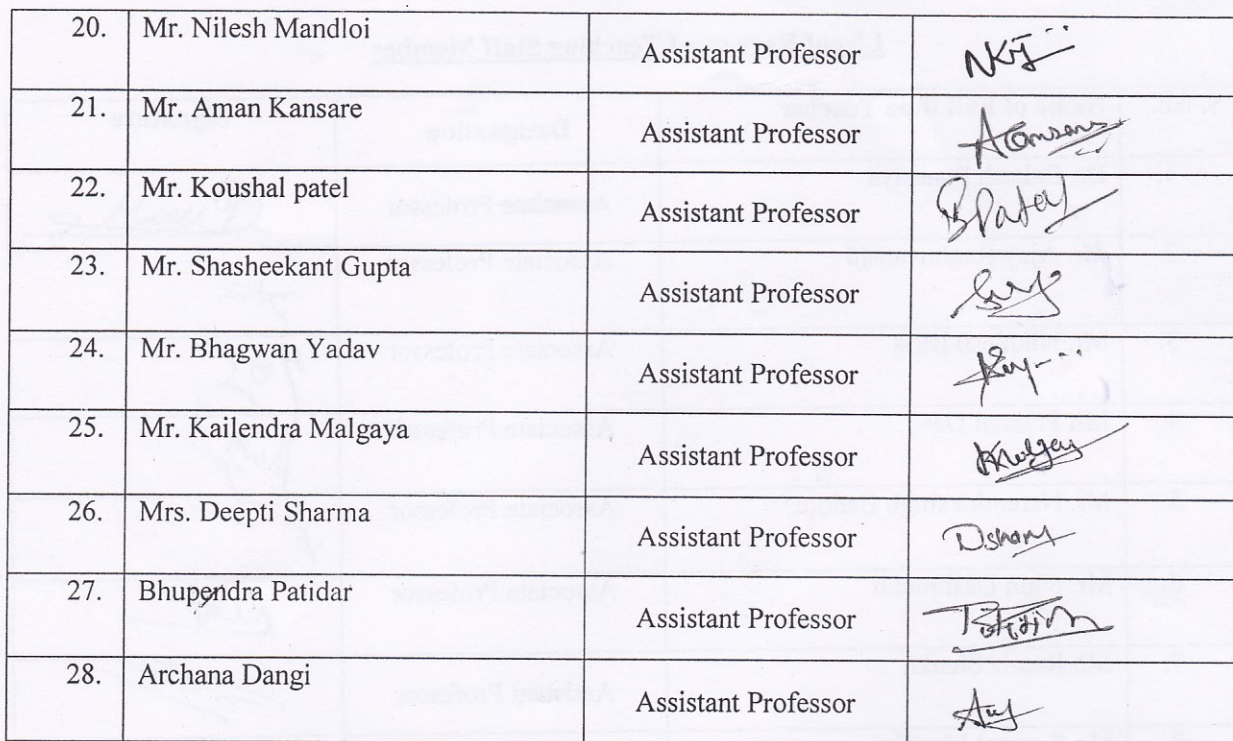 20. Mr. Nilesh Mandloi Assistant Professor
21. Mr. Aman Kansare Assistant Professor
22. Mr. Koushal patel Assistant Professor BPatel
23. Mr. Shasheekant Gupta Assistant Professor
24. Mr. Bhagwan Yadav Assistant Professor
25. Mr. Kailendra Malgaya Assistant Professor
26. Mrs. Deepti Sharma Assistant Professor
27. Bhupendra Patidar Assistant Professor
28. Archana Dangi Assistant Professor